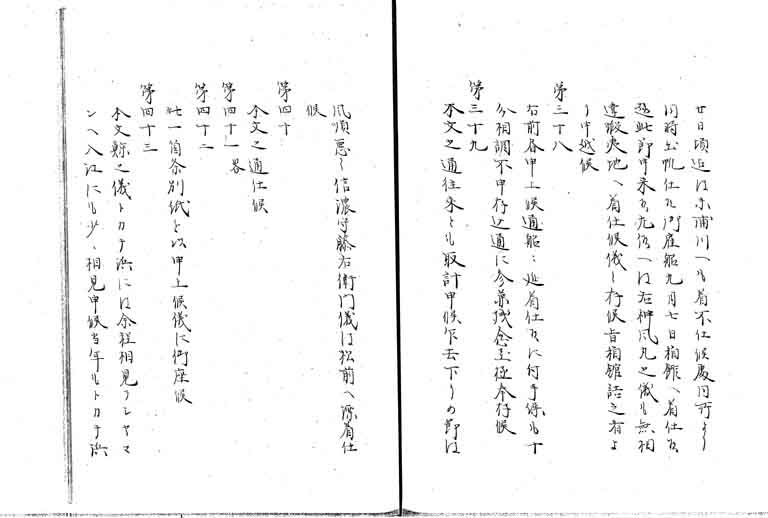 廿日頃迄は小浦川へも着不仕候処同所より
同時出帆仕候門屋船九月七日箱館へ着仕候
此節申来候左候へは右神風丸之儀も無相
違蝦夷地へ着仕候儀と存候旨箱館詰之者よ
り申越候
第三十八
右前春申上候通船之延着仕候に付手続も十
分相調不申存込通に参兼残念至極奉存候
第三十九
本文之通往来とも取計申候乍去下りの節は
風順悪く信濃守藤右衛門儀は松前へ漂着仕
候
第四十
本文之通仕候
第四十一 略
第四十二
此一箇条別紙を以申上候儀に御座候
第四十三
本文鯨之儀トカチ浜には余程相見ヲシヤマ
ンヘ入江にも少々相見申候当年もトカチ浜